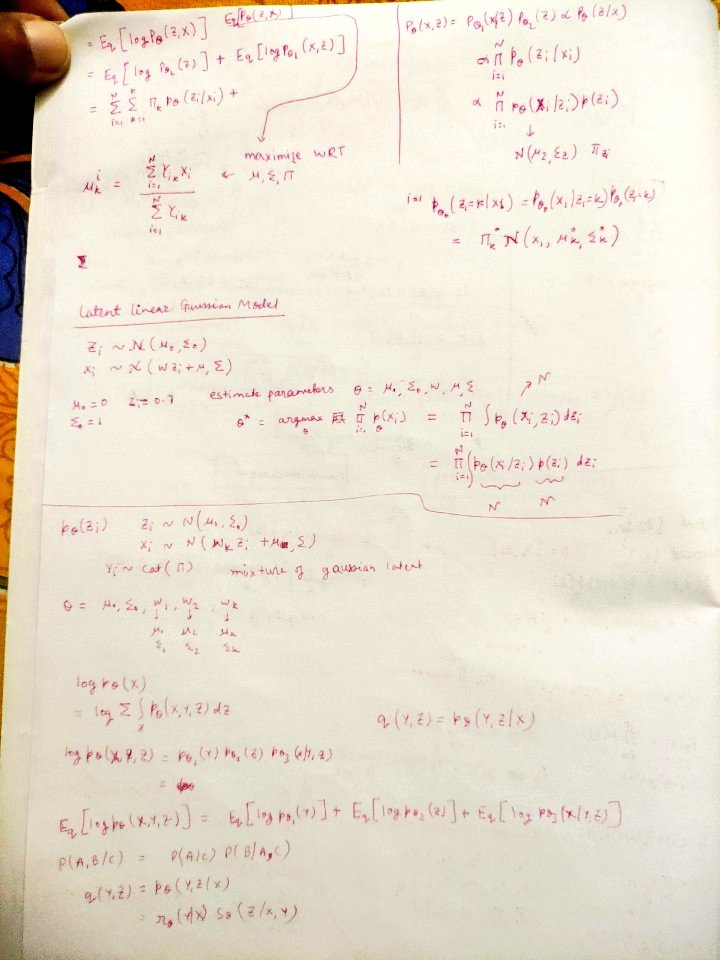 = Eq[log Pθ(Z,X)] Eq[Pθ(Z,X)]
= Eq[log Pθ2(Z)] + Eq[log Pθ1(X,Z)]
= Σ_{i=1}^{N} Σ_{k=1}^{k} Πk pθ(Zi/Xi) +
maximize WRT
μ, Σ, Π
μ_k^i = Σ_{i=1}^{N} γik xi / Σ_{i=1}^{N} γik ←
Σ
Pθ(X,Z) = Pθ1(X/Z) Pθ2(Z) ∝ Pθ(Z/X)
∝ Π_{i=1}^{N} pθ(Zi/Xi)
∝ Π_{i=1}^{N} pθ(Xi/Zi) p(Zi)
↓
N(μZ, ΣZ) ΠZi
i=1 pθ0(Z1=k|X1) = pθ0(X1|Z1=k) pθ0(Z1=k)
= Πk° N(X1, μk°, Σk°)
Latent linear Gaussian Model
Zi ~ N(μ0, Σ0)
Xi ~ N(WZi + μ, Σ)
μ0 = 0 Zi = 0.7 estimate parameters θ = μ0, Σ0, W, μ, Σ
Σ0 = 1
θ* = argmax_θ Π_{i=1}^{N} pθ(Xi) = Π_{i=1}^{N} ∫ pθ(Xi, Zi) dZi → N
= Π_{i=1}^{N} ∫ pθ(Xi/Zi) p(Zi) dZi
N N
pθ(Zi) Zi ~ N(μ0, Σ0)
Xi ~ N(Wk Zi + μ, Σ)
Yi ~ Cat(Π) mixture of gaussian latent
θ = μ0, Σ0, W1, W2, Wk
↓ ↓ ↓
μ1 μ2 μk
Σ1 Σ2 Σk
log pθ(X)
= log Σ ∫_Z Pθ(X,Y,Z) dZ
q(Y,Z) = pθ(Y,Z/X)
log pθ(X,Y,Z) = pθ1(Y) pθ2(Z) pθ3(X/Y,Z)
=
Eq[log pθ(X,Y,Z)] = Eq[log pθ1(Y)] + Eq[log pθ2(Z)] + Eq[log pθ3(X/Y,Z)]
P(A,B/C) = P(A/C) P(B/A,C)
q(Y,Z) = pθ(Y,Z/X)
= rθ(Y/X) Sθ(Z/X,Y)